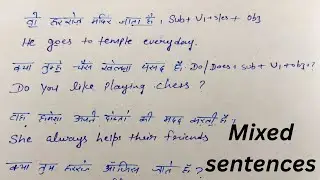 वो हररोज मंदिर जाता है। Sub + V₁+s/es + Obj
He goes to temple everyday.
क्या तुम्हे चेस खेलना पसंद है. Do/Does + Sub + V₁ + obj+?
Do you like playing chess?
हमेशा अपने दोस्तों की मदद करती है
She always helps their friends
Mixed
क्या तुम हररोज ऑफिस जाते हो?
sentences